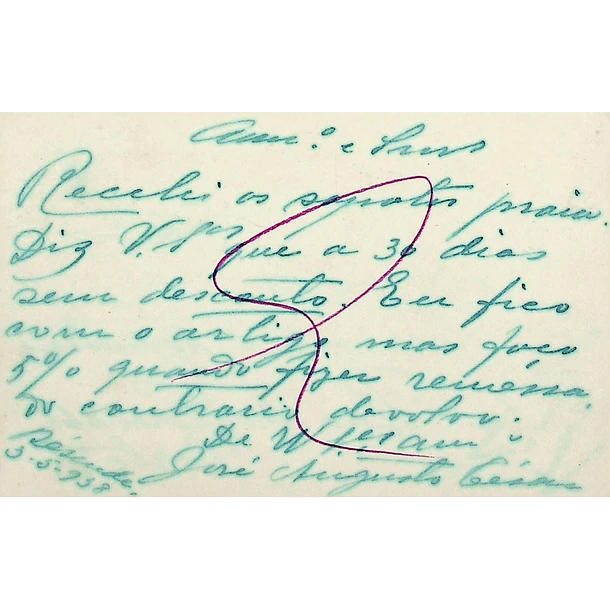 Am.º e Snrs
Recebi os sapatos praia.
Diz V. Sas que a 30 dias
sem desconto. Eu fico
com o artigo mas faço
5% quando fizer remessa.
do contrario devolvo.
De V. Sas am.º
José Augusto César
Resende
3-5-938.